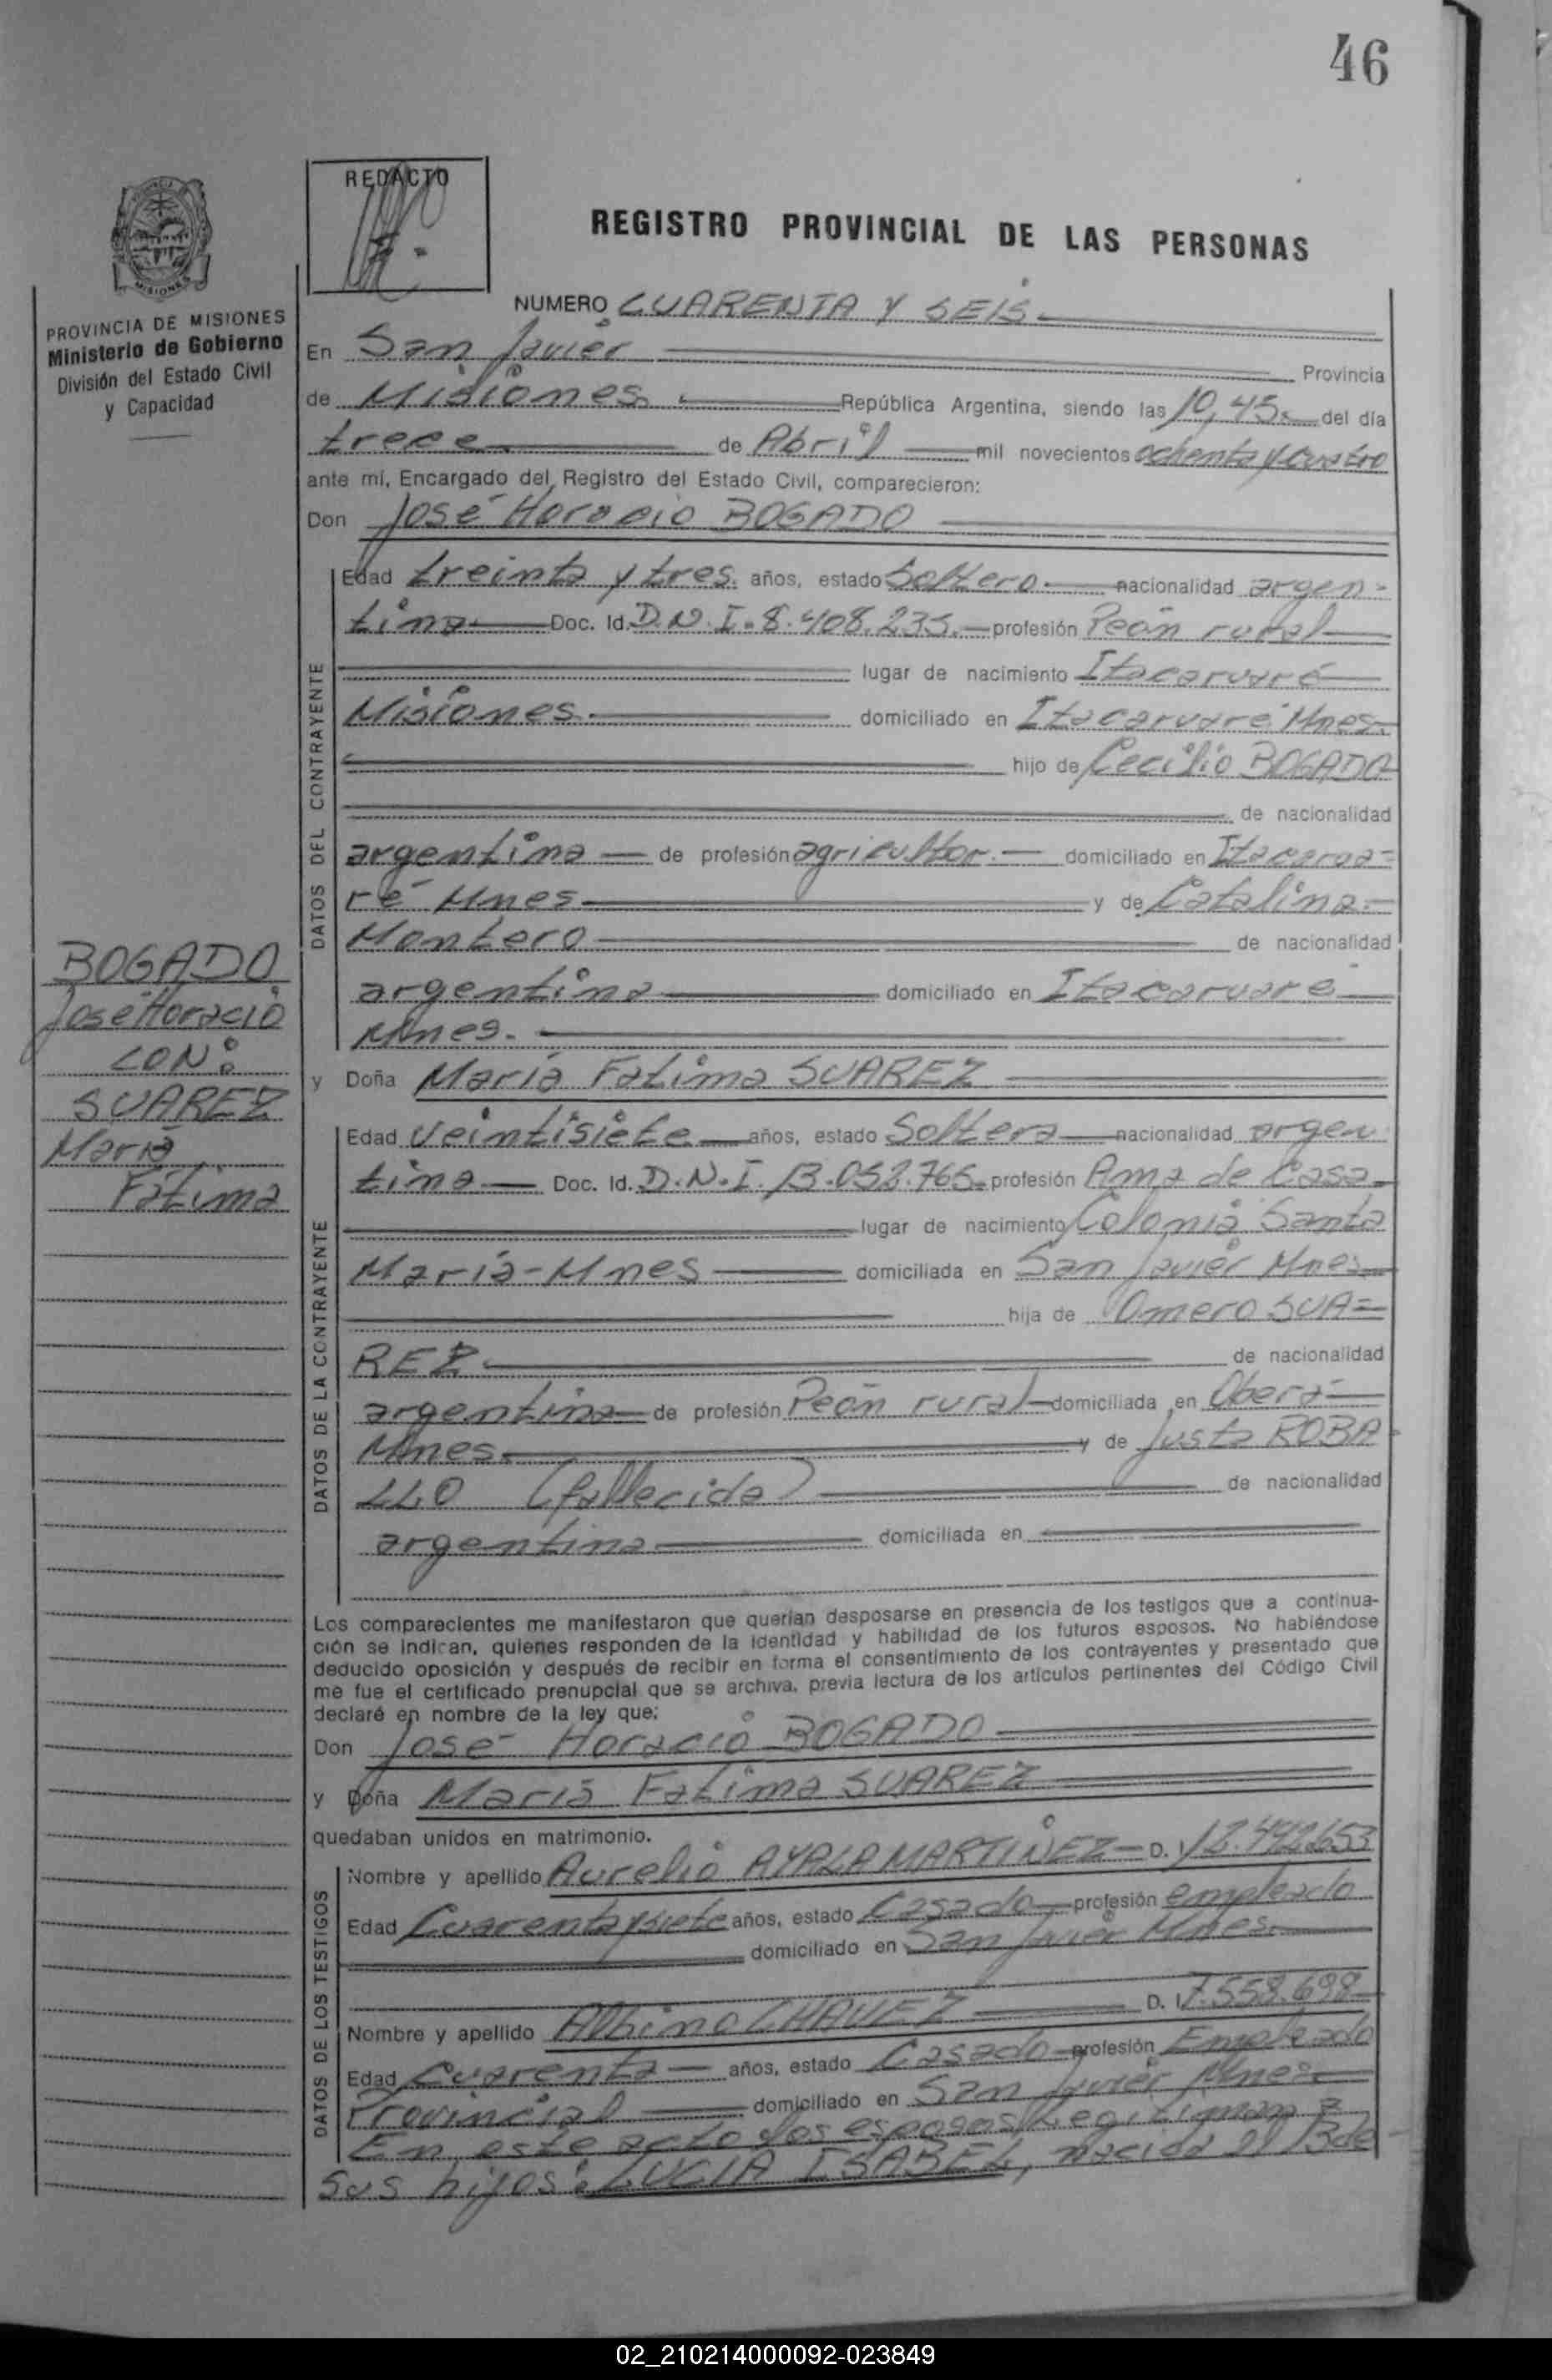 46
REDACTO
REGISTRO PROVINCIAL DE LAS PERSONAS
PROVINCIA DE MISIONES
Ministerio de Gobierno
División del Estado Civil
y Capacidad
NUMERO CUARENTA Y SEIS
En San Javier Provincia
de Misiones República Argentina, siendo las 10,45 del día
trece de Abril mil novecientos ochenta y cuatro
ante mí, Encargado del Registro del Estado Civil, comparecieron:
Don José Horacio BOGADO
DATOS DEL CONTRAYENTE
Edad treinta y tres. años, estado Soltero nacionalidad argen-
tina Doc. Id. D.N.I. 8.408.235. profesión Peón rural
lugar de nacimiento Itacaruaré
Misiones. domiciliado en Itacaruaré Mnes.
hijo de Cecilio BOGADO
de nacionalidad
argentina de profesión agricultor. domiciliado en Itacarua=
ré Mnes y de Catalina
Montero de nacionalidad
argentina domiciliado en Itacaruaré
Mnes.
BOGADO
José Horacio
CON:
SUAREZ
María
Fátima
y Doña María Fatima SUAREZ
DATOS DE LA CONTRAYENTE
Edad veintisiete años, estado Soltera nacionalidad argen
tina Doc. Id. D.N.I. 13.052.765 profesión Ama de Casa
lugar de nacimiento Colonia Santa
María-Mnes domiciliada en San Javier Mnes
hija de Omero SUA=
REZ de nacionalidad
argentina de profesión Peón rural domiciliada en Oberá
Mnes. y de Justa ROBA-
LLO (fallecida) de nacionalidad
argentina domiciliada en
Los comparecientes me manifestaron que querían desposarse en presencia de los testigos que a continua-
ción se indican, quienes responden de la identidad y habilidad de los futuros esposos. No habiéndose
deducido oposición y después de recibir en forma el consentimiento de los contrayentes y presentado que
me fue el certificado prenupcial que se archiva, previa lectura de los artículos pertinentes del Código Civil
declaré en nombre de la ley que:
Don José Horacio BOGADO
y Doña María Fatima SUAREZ
quedaban unidos en matrimonio.
DATOS DE LOS TESTIGOS
Nombre y apellido Aurelio AYALA MARTINEZ D. I
Edad Cuarenta y siete años, estado Casado profesión empleado
domiciliado en San Javier Mnes.
Nombre y apellido Albino CHAVEZ D. I 7.558.698
Edad Cuarenta años, estado Casado profesión Empleado
Provincial domiciliado en San Javier Mnes
En este acto los esposos legitiman a
sus hijos: LUCIA ISABEL, nacida el 13 de
02_210214000092-023849